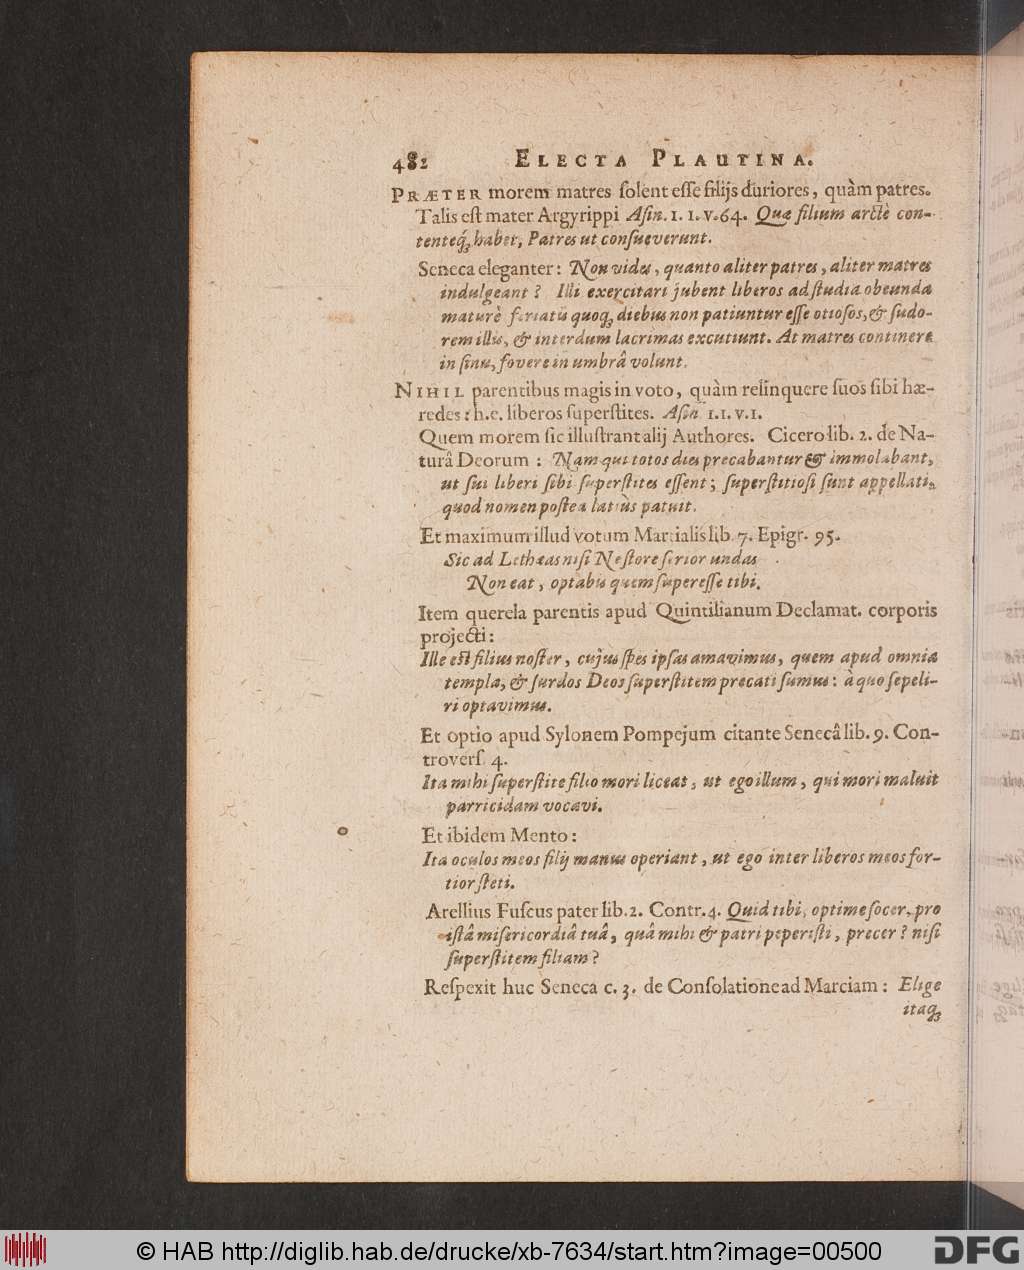 482 ELECTA PLAUTINA.
PRÆTER morem matres ſolent eſſe filijs duriores, quàm patres.
Talis eſt mater Argyrippi Aſin. 1. 1. v. 64. Quæ filium arctè con-
tenteq́; habet, Patres ut conſueverunt.
Seneca eleganter: Non vides, quanto aliter patres, aliter matres
indulgeant? Illi exercitari jubent liberos ad ſtudia obeunda
maturè feriatis quoq; diebus non patiuntur eſſe otioſos, & ſudo-
rem illis, & interdum lacrimas excutiunt. At matres continere
in ſinu, fovere in umbrâ volunt.
NIHIL parentibus magis in voto, quàm relinquere ſuos ſibi hæ-
redes: h.e. liberos ſuperſtites. Aſin. 1. 1. v. 1.
Quem morem ſic illuſtrant alij Authores. Cicero lib. 2. de Na-
turâ Deorum: Nam qui totos dies precabantur & immolabant,
ut ſui liberi ſibi ſuperſtites eſſent; ſuperſtitioſi ſunt appellati,
quod nomen poſtea latiùs patuit.
Et maximum illud votum Martialis lib. 7. Epigr. 95.
Sic ad Lethæas niſi Neſtore ſerior undas
Non eat, optabis quem ſupereſſe tibi.
Item querela parentis apud Quintilianum Declamat. corporis
projecti:
Ille eſt filius noſter, cujus ſpes ipſas amavimus, quem apud omnia
templa, & ſurdos Deos ſuperſtitem precati ſumus: à quo ſepeli-
ri optavimus.
Et optio apud Sylonem Pompejum citante Senecâ lib. 9. Con-
troverſ. 4.
Ita mihi ſuperſtite filio mori liceat, ut ego illum, qui mori maluit
parricidam vocavi.
Et ibidem Mento:
Ita oculos meos filij manus operiant, ut ego inter liberos meos for-
tior ſteti.
Arellius Fuſcus pater lib. 2. Contr. 4. Quid tibi, optime ſocer, pro
iſtâ miſericordiâ tuâ, quâ mihi & patri peperiſti, precer? niſi
ſuperſtitem filiam?
Reſpexit huc Seneca c. 3. de Conſolatione ad Marciam: Elige
itaq;
© HAB http://diglib.hab.de/drucke/xb-7634/start.htm?image=00500
DFG